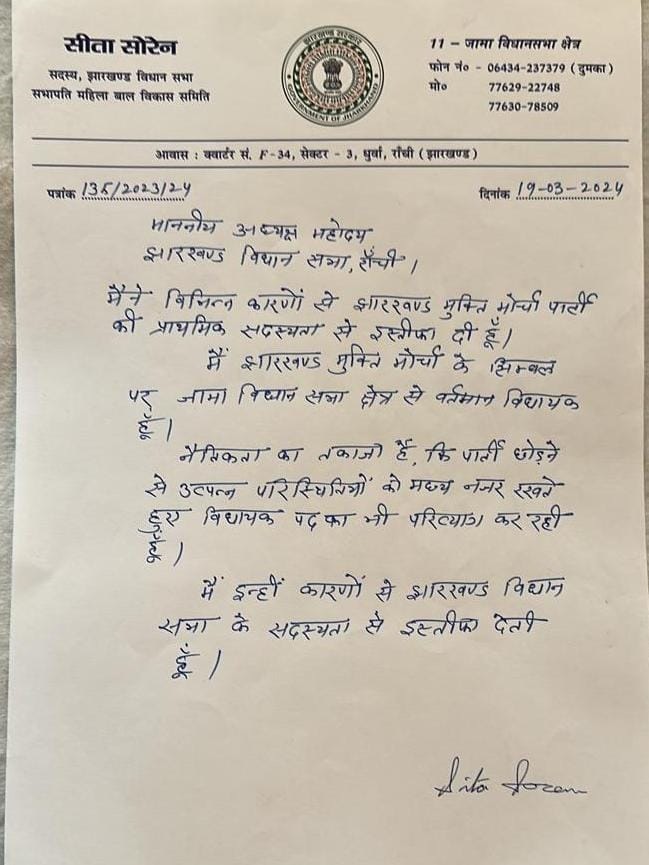 सीता सोरेन
सदस्य, झारखण्ड विधान सभा
सभापति महिला बाल विकास समिति
झारखण्ड सरकार
GOVERNMENT OF JHARKHAND
11 – जामा विधानसभा क्षेत्र
फोन नं० - 06434-237379 ( दुमका )
मो० 77629-22748
77630-78509
आवास : क्वार्टर सं. F-34, सेक्टर - 3, धुर्वा, राँची ( झारखण्ड )
पत्रांक 135/2023/24 दिनांक 19-03-2024
माननीय अध्यक्ष महोदय
झारखण्ड विधान सभा, राँची ।
मैंने विभिन्न कारणों से झारखण्ड मुक्ति मोर्चा पार्टी
की प्राथमिक सदस्यता से इस्तीफा दी हूँ ।
मैं झारखण्ड मुक्ति मोर्चा के सिम्बल
पर जामा विधान सभा क्षेत्र से वर्तमान विधायक
हूँ ।
नैतिकता का तकाजा है, कि पार्टी छोड़ने
से उत्पन्न परिस्थितिओं को मध्य नजर रखते
हुए विधायक पद का भी परित्याग कर रही
हूँ ।
मैं इन्हीं कारणों से झारखण्ड विधान
सभा के सदस्यता से इस्तीफा देती
हूँ ।
Sita Soren